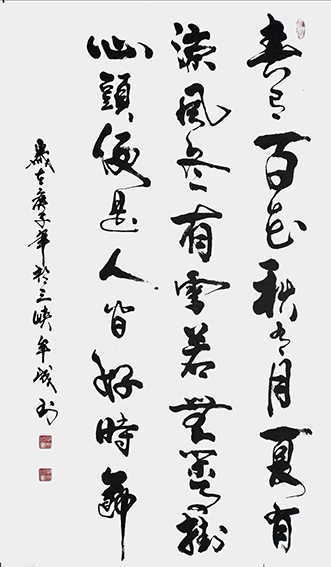 春有百花秋有月夏有
涼風冬有雪若無閑事掛
心頭便是人間好時節
歲在庚子年於三峽牟成